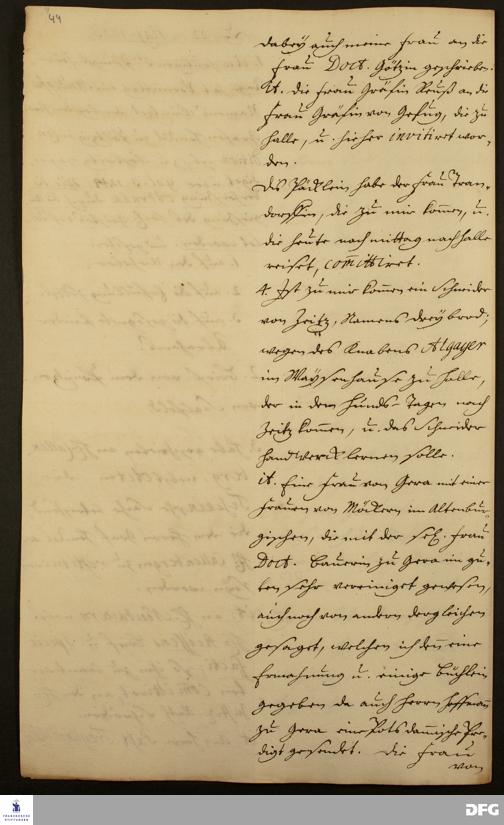 44
dabey auch meine Frau an die
Frau Doct. Götzin geschrieben.
It. die Frau Gräfin Reuß an die
Frau Gräfin von Gefug, die zu
Halle, u. hieher invitiret wor-
den.
Das Päcklein habe der Frau Tran-
dorffen, die zu mir kommen, u.
die heute nach mittag nach Halle
reiset, committiret.
4 Ist zu mir kommen ein Schneider
von Zeitz, Namens Dreybrod;
wegen des Knabens Algayer
im Waysenhause zu Halle,
der in den Hunds-Tagen nach
Zeitz kommen, u. das Schneider
Handwerck lernen solle.
it. Eine Frau von Gera mit einer
Frauen von Möckern im Altenbur-
gischen, die mit der sel. Frau
Doct. Bauerin zu Gera im gu-
ten sehr vereiniget gewesen,
auch noch von andern dergleichen
gesaget, welchen ich den eine
Ermahnung u. einige Büchlein
gegeben da auch Herrn Hoffmann
zu Gera eine Potsdammische Pre-
digt gesendet. Die Frau
von
FRANCKESCHE STIFTUNGEN
DFG